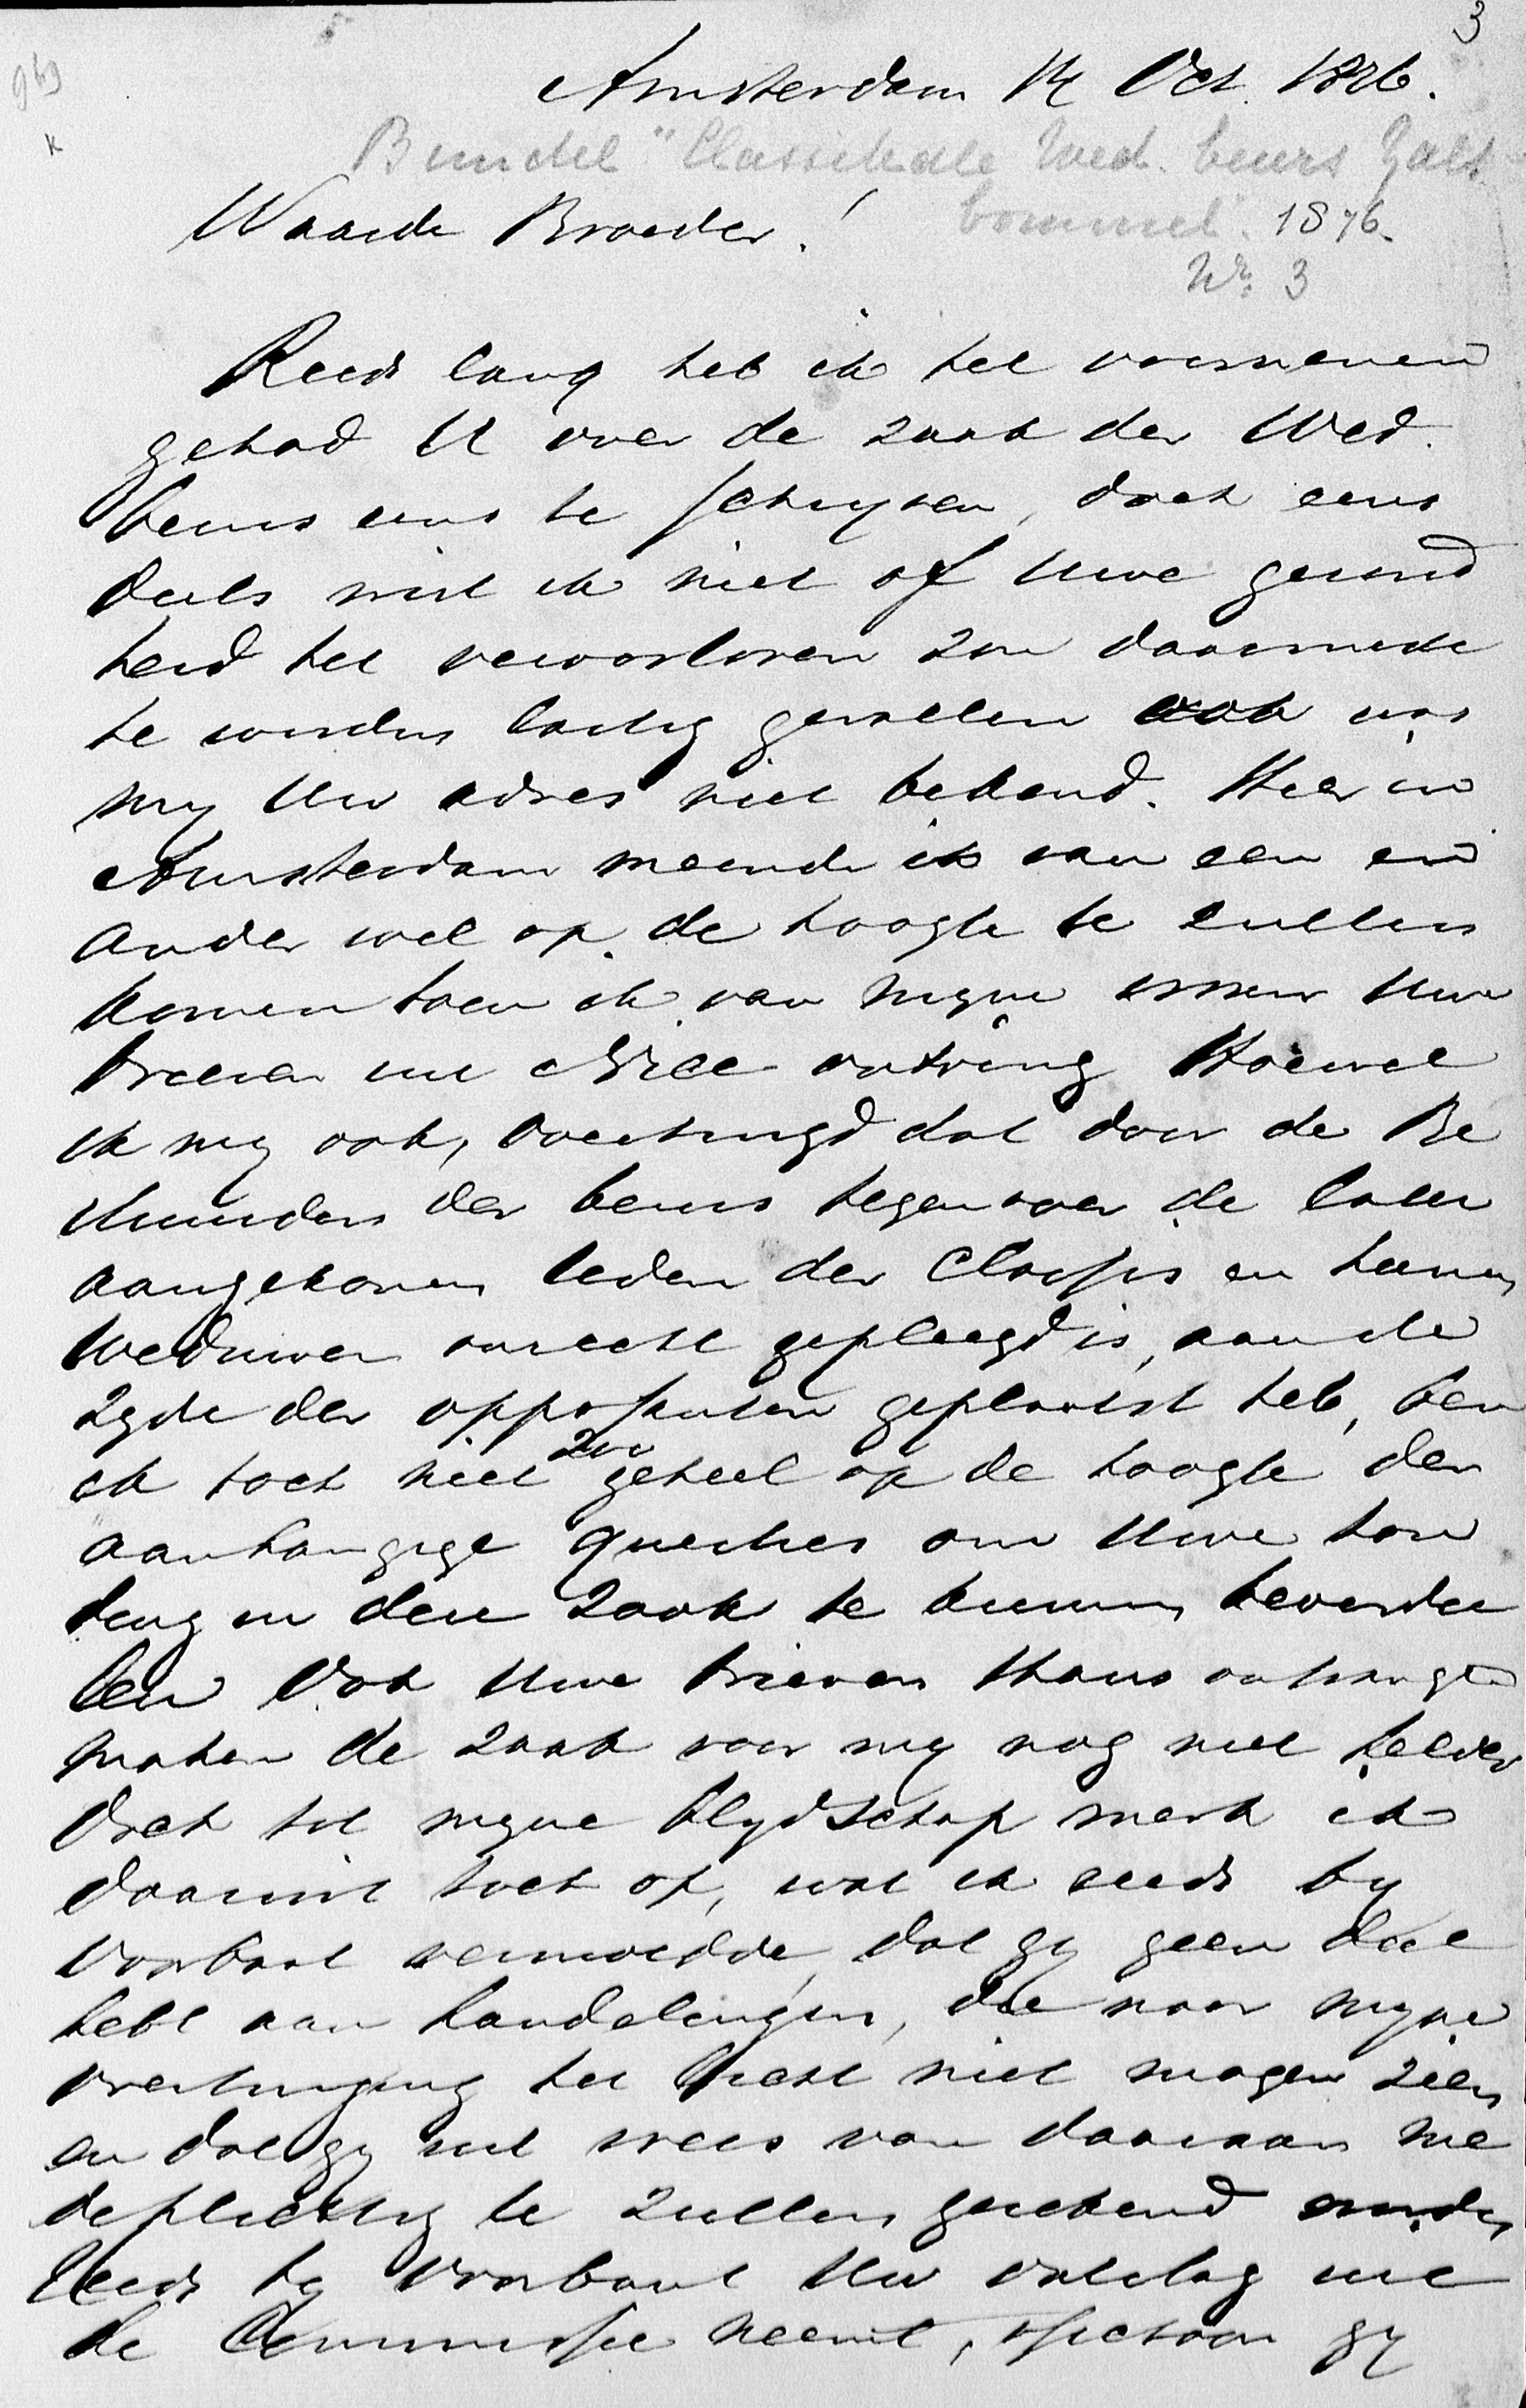 3
Amsterdam 14 Oct. 1876.
Bundel "Classicale Wed. beurs Zalt-
bommel". 1876.
Nr. 3
Waarde Broeder!
Reeds lang heb ik het voornemen
gehad U over de zaak der Wed.
beurs eens te schryven, doch eens
deels wist ik niet of Uwe gezond
heid het veroorloven zou daarmede
te worden lastig gevallen ook was
my Uw adres niet bekend. Hier in
Amsterdam meende ik van een en
ander wel op de hoogte te zullen
komen toen ik van myne vrouw Uwe
brieven uit Nice ontving Hoewel
ik my ook, overtuigd dat door de Be
stuurders der beurs tegenover de later
aangekomen leden der Classis en hunne
Weduwen onrecht gepleegd is, aan de
zyde der opposanten geplaatst heb, ben
ik toch niet zoo geheel op de hoogte der
aanhangige questies om Uwe hou
ding in deze zaak te kunnen beoordee
len Ook Uwe brieven thans ontvangen
maken de zaak voor my nog niet helder
Doch tot myne blydschap merk ik
daaruit toch op, wat ik reeds by
voorbaat vermoedde, dat gy geen deel
hebt aan handelingen, die naar myne
overtuiging het licht niet mogen zien
en dat gy uit vrees van daaraan me
deplichtig te zullen gerekend worden
reeds by voorbaat Uw ontslag uit
de Commissie neemt, ofschoon gy